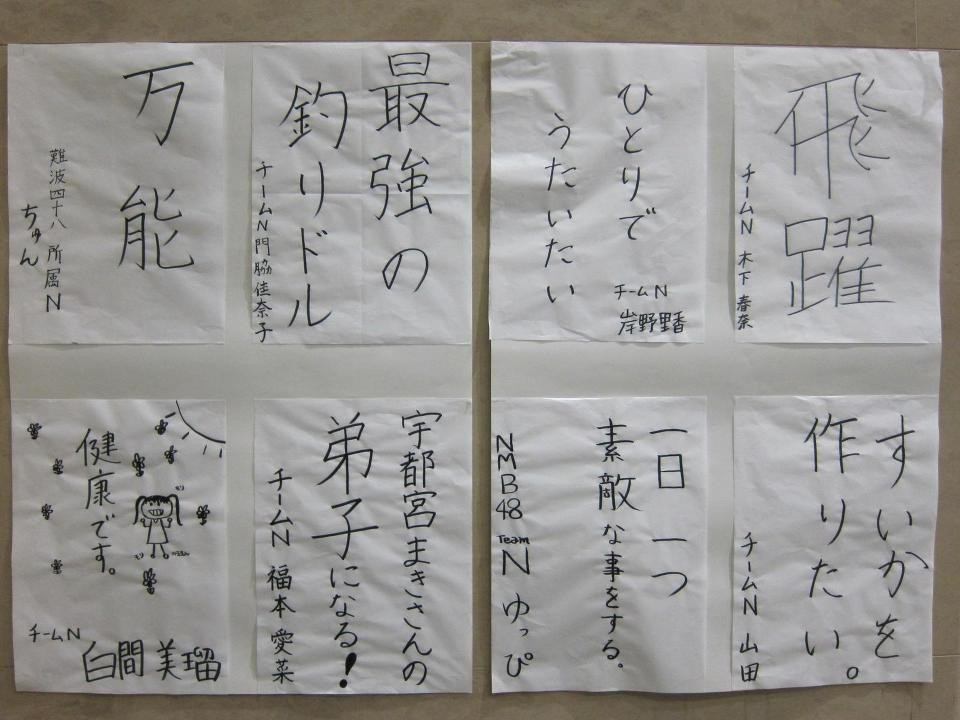 飛躍
チームN 木下 春奈
ひとりで
うたいたい
チームN
岸野里香
最強の
釣りドル
チームN 門脇佳奈子
万能
難波四十八 所属N
ちゅん
すいかを
作りたい。
チームN 山田
一日一つ
素敵な事をする。
NMB48 TeamN ゆっぴ
宇都宮まきさんの
弟子になる!
チームN 福本 愛菜
健康です。
チームN
白間美瑠